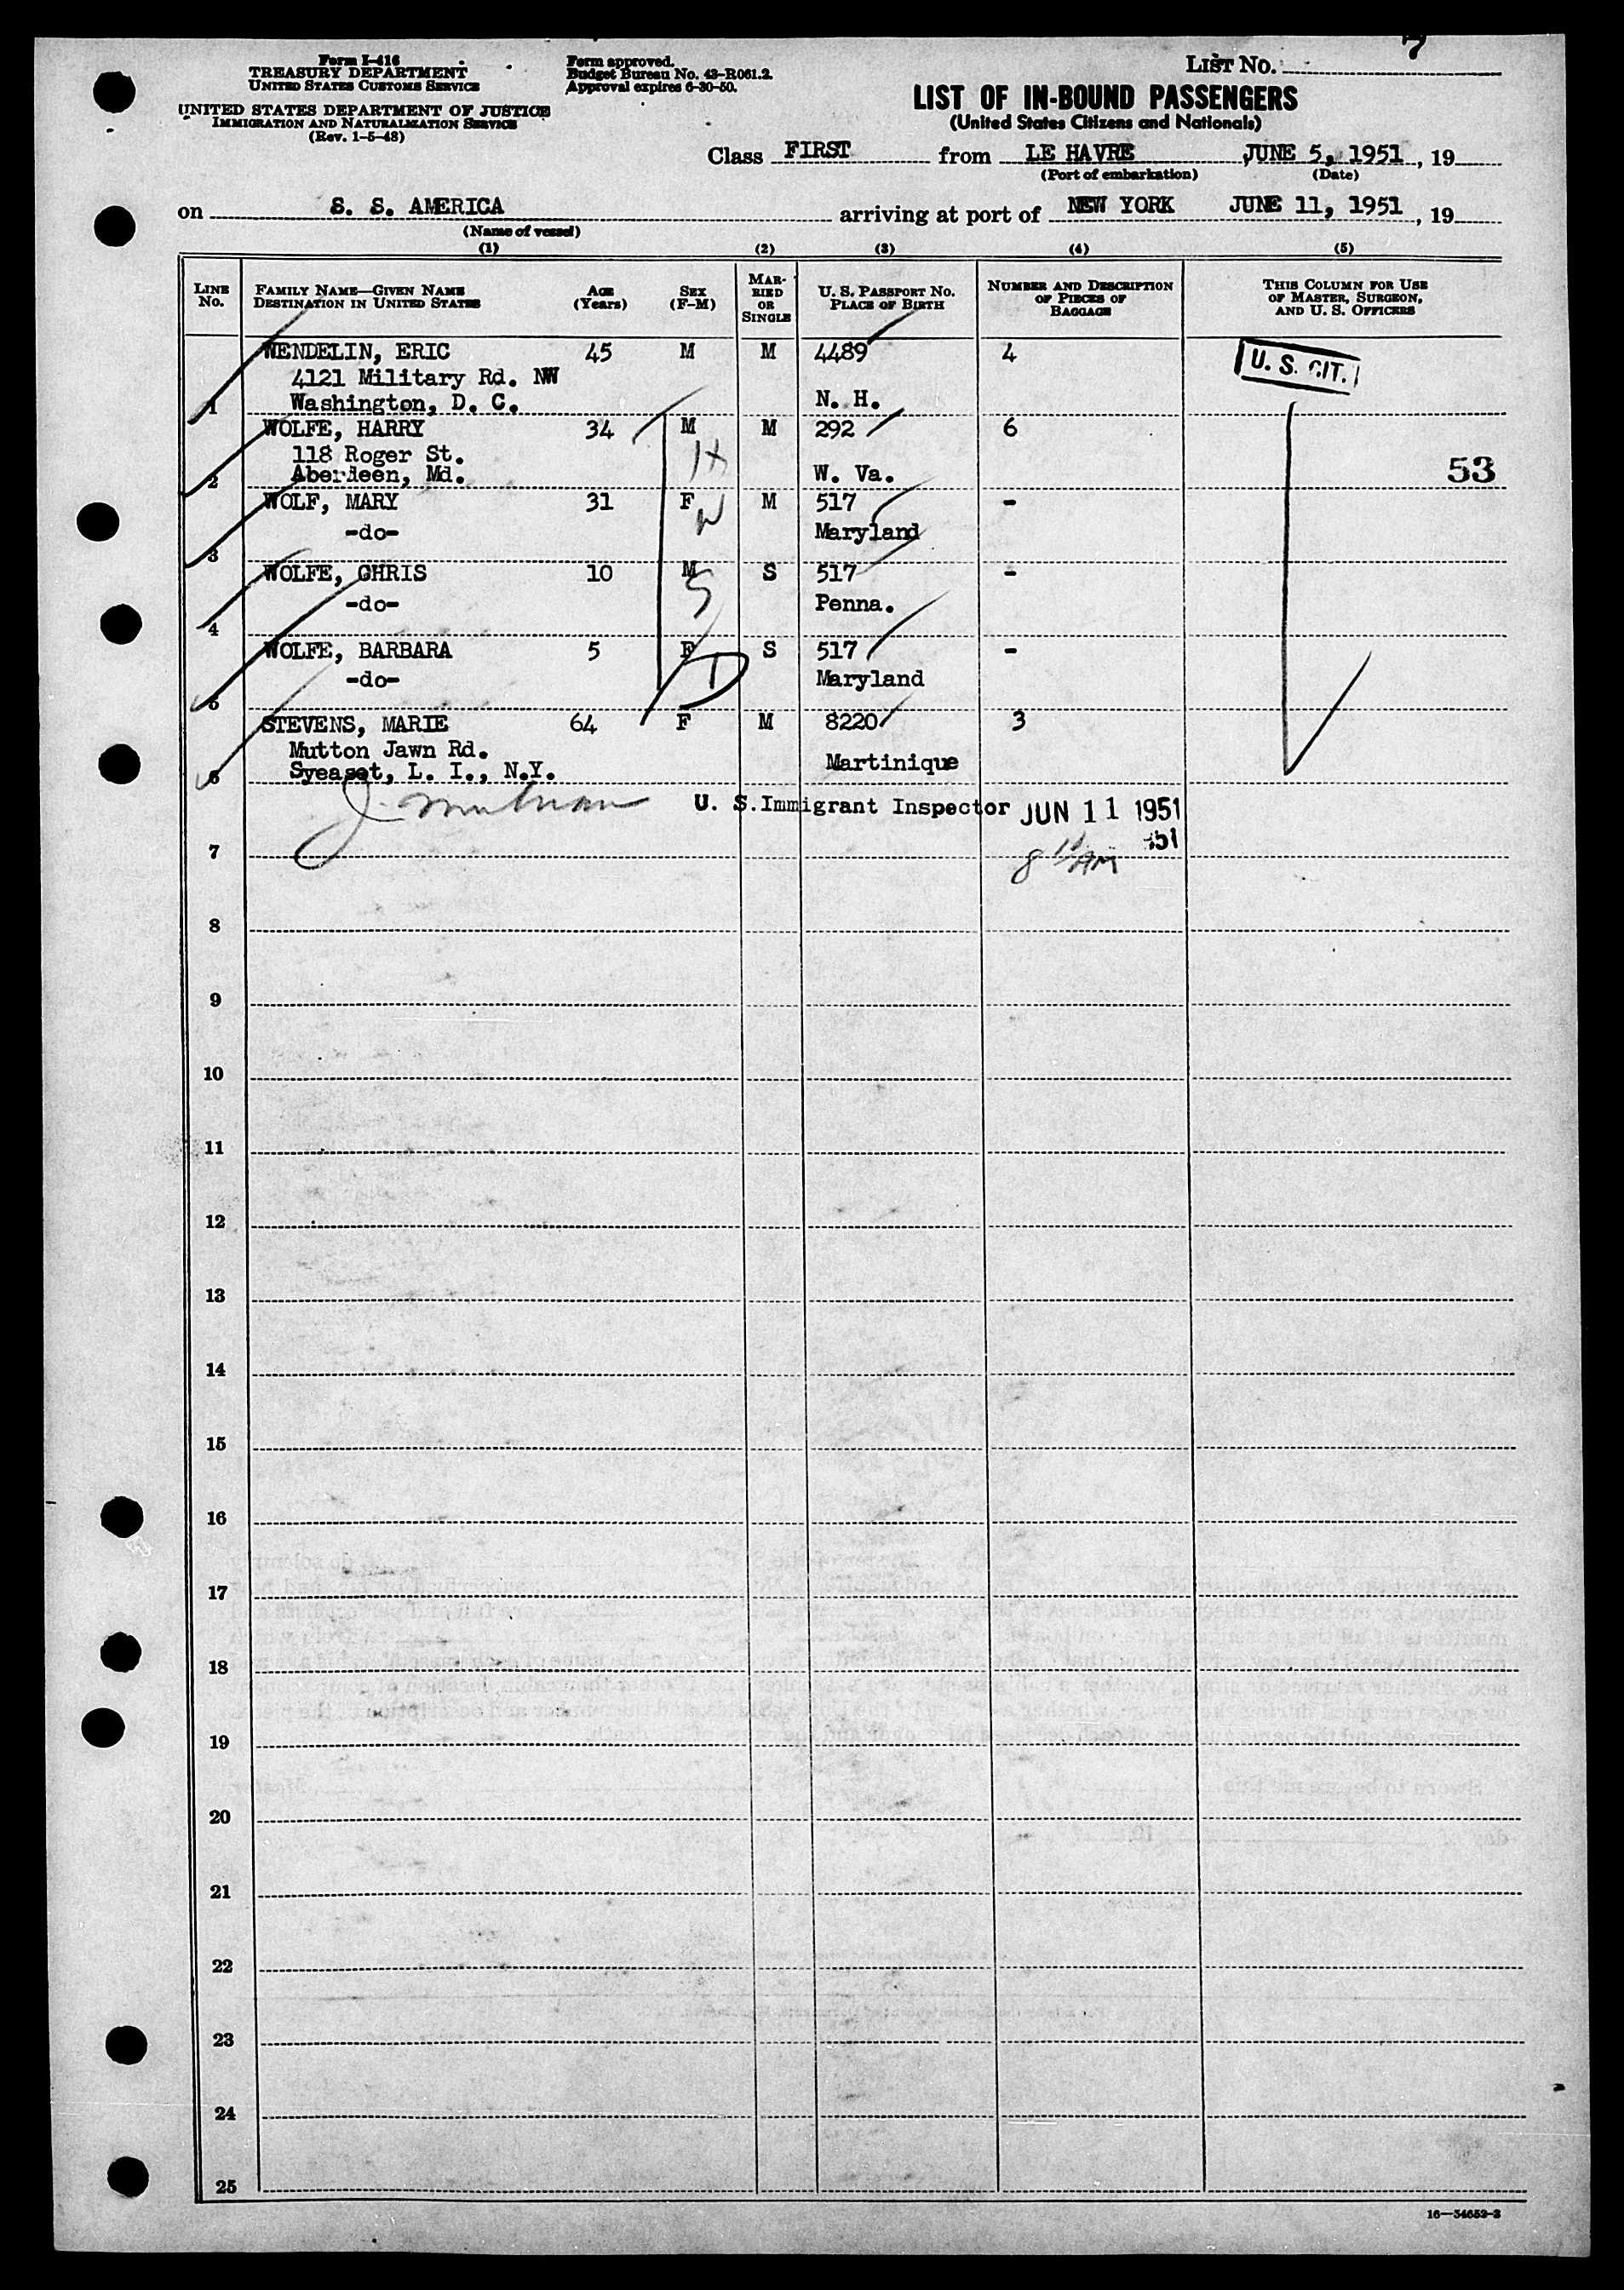 7
Form I-416
TREASURY DEPARTMENT
UNITED STATES CUSTOMS SERVICE
UNITED STATES DEPARTMENT OF JUSTICE
IMMIGRATION AND NATURALIZATION SERVICE
(Rev. 1-5-48)
Form approved.
Budget Bureau No. 43-R061.2.
Approval expires 6-30-50.
LIST No.
LIST OF IN-BOUND PASSENGERS
(United States Citizens and Nationals)
Class FIRST from LE HAVRE JUNE 5, 1951, 19
(Port of embarkation) (Date)
on S. S. AMERICA arriving at port of NEW YORK JUNE 11, 1951, 19
(Name of vessel)
(1) (2) (3) (4) (5)
LINE No.
FAMILY NAME—GIVEN NAME
DESTINATION IN UNITED STATES
AGE (Years)
SEX (F-M)
MARRIED OR SINGLE
U. S. PASSPORT No.
PLACE OF BIRTH
NUMBER AND DESCRIPTION OF PIECES OF BAGGAGE
THIS COLUMN FOR USE OF MASTER, SURGEON, AND U. S. OFFICERS
WENDELIN, ERIC 45 M M 4489 4 U. S. CIT.
4121 Military Rd. NW
1 Washington, D. C. N. H.
WOLFE, HARRY 34 M M 292 6
118 Roger St. H
2 Aberdeen, Md. W. Va. 53
WOLF, MARY 31 F M 517 -
-do- W Maryland
3
WOLFE, CHRIS 10 M S 517 -
-do- S Penna.
4
WOLFE, BARBARA 5 F S 517 -
-do- D Maryland
5
STEVENS, MARIE 64 F M 8220 3
Mutton Jawn Rd. Martinique
6 Syeaset, L. I., N.Y.
U. S. Immigrant Inspector JUN 11 1951
51
7 8 10 AM
8
9
10
11
12
13
14
15
16
17
18
19
20
21
22
23
24
25
16—54652-3